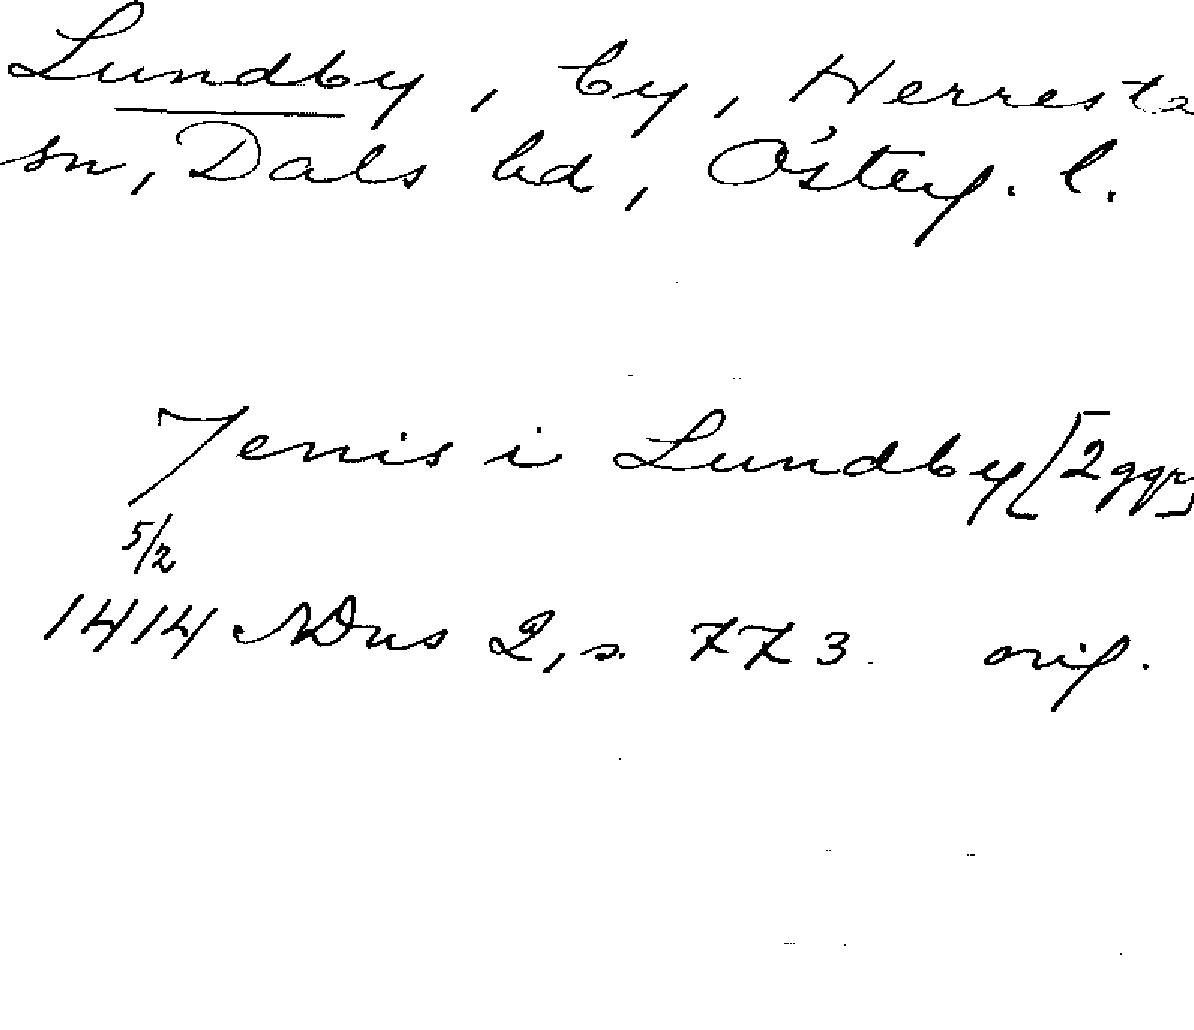 Lundby, by, Herresta
sn, Dals hd, Österg. l.
Jenis i Lundby [2 ggr]
5/2
1414 SDns 2, s. 773. orig.